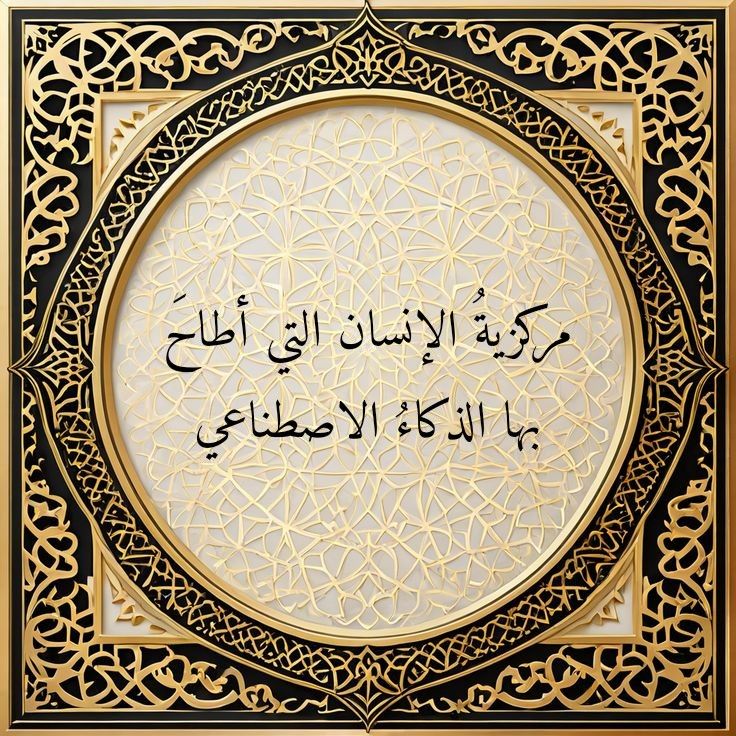 مركزيةُ الإنسان التي أطاحَ
بها الذكاءُ الاصطناعي